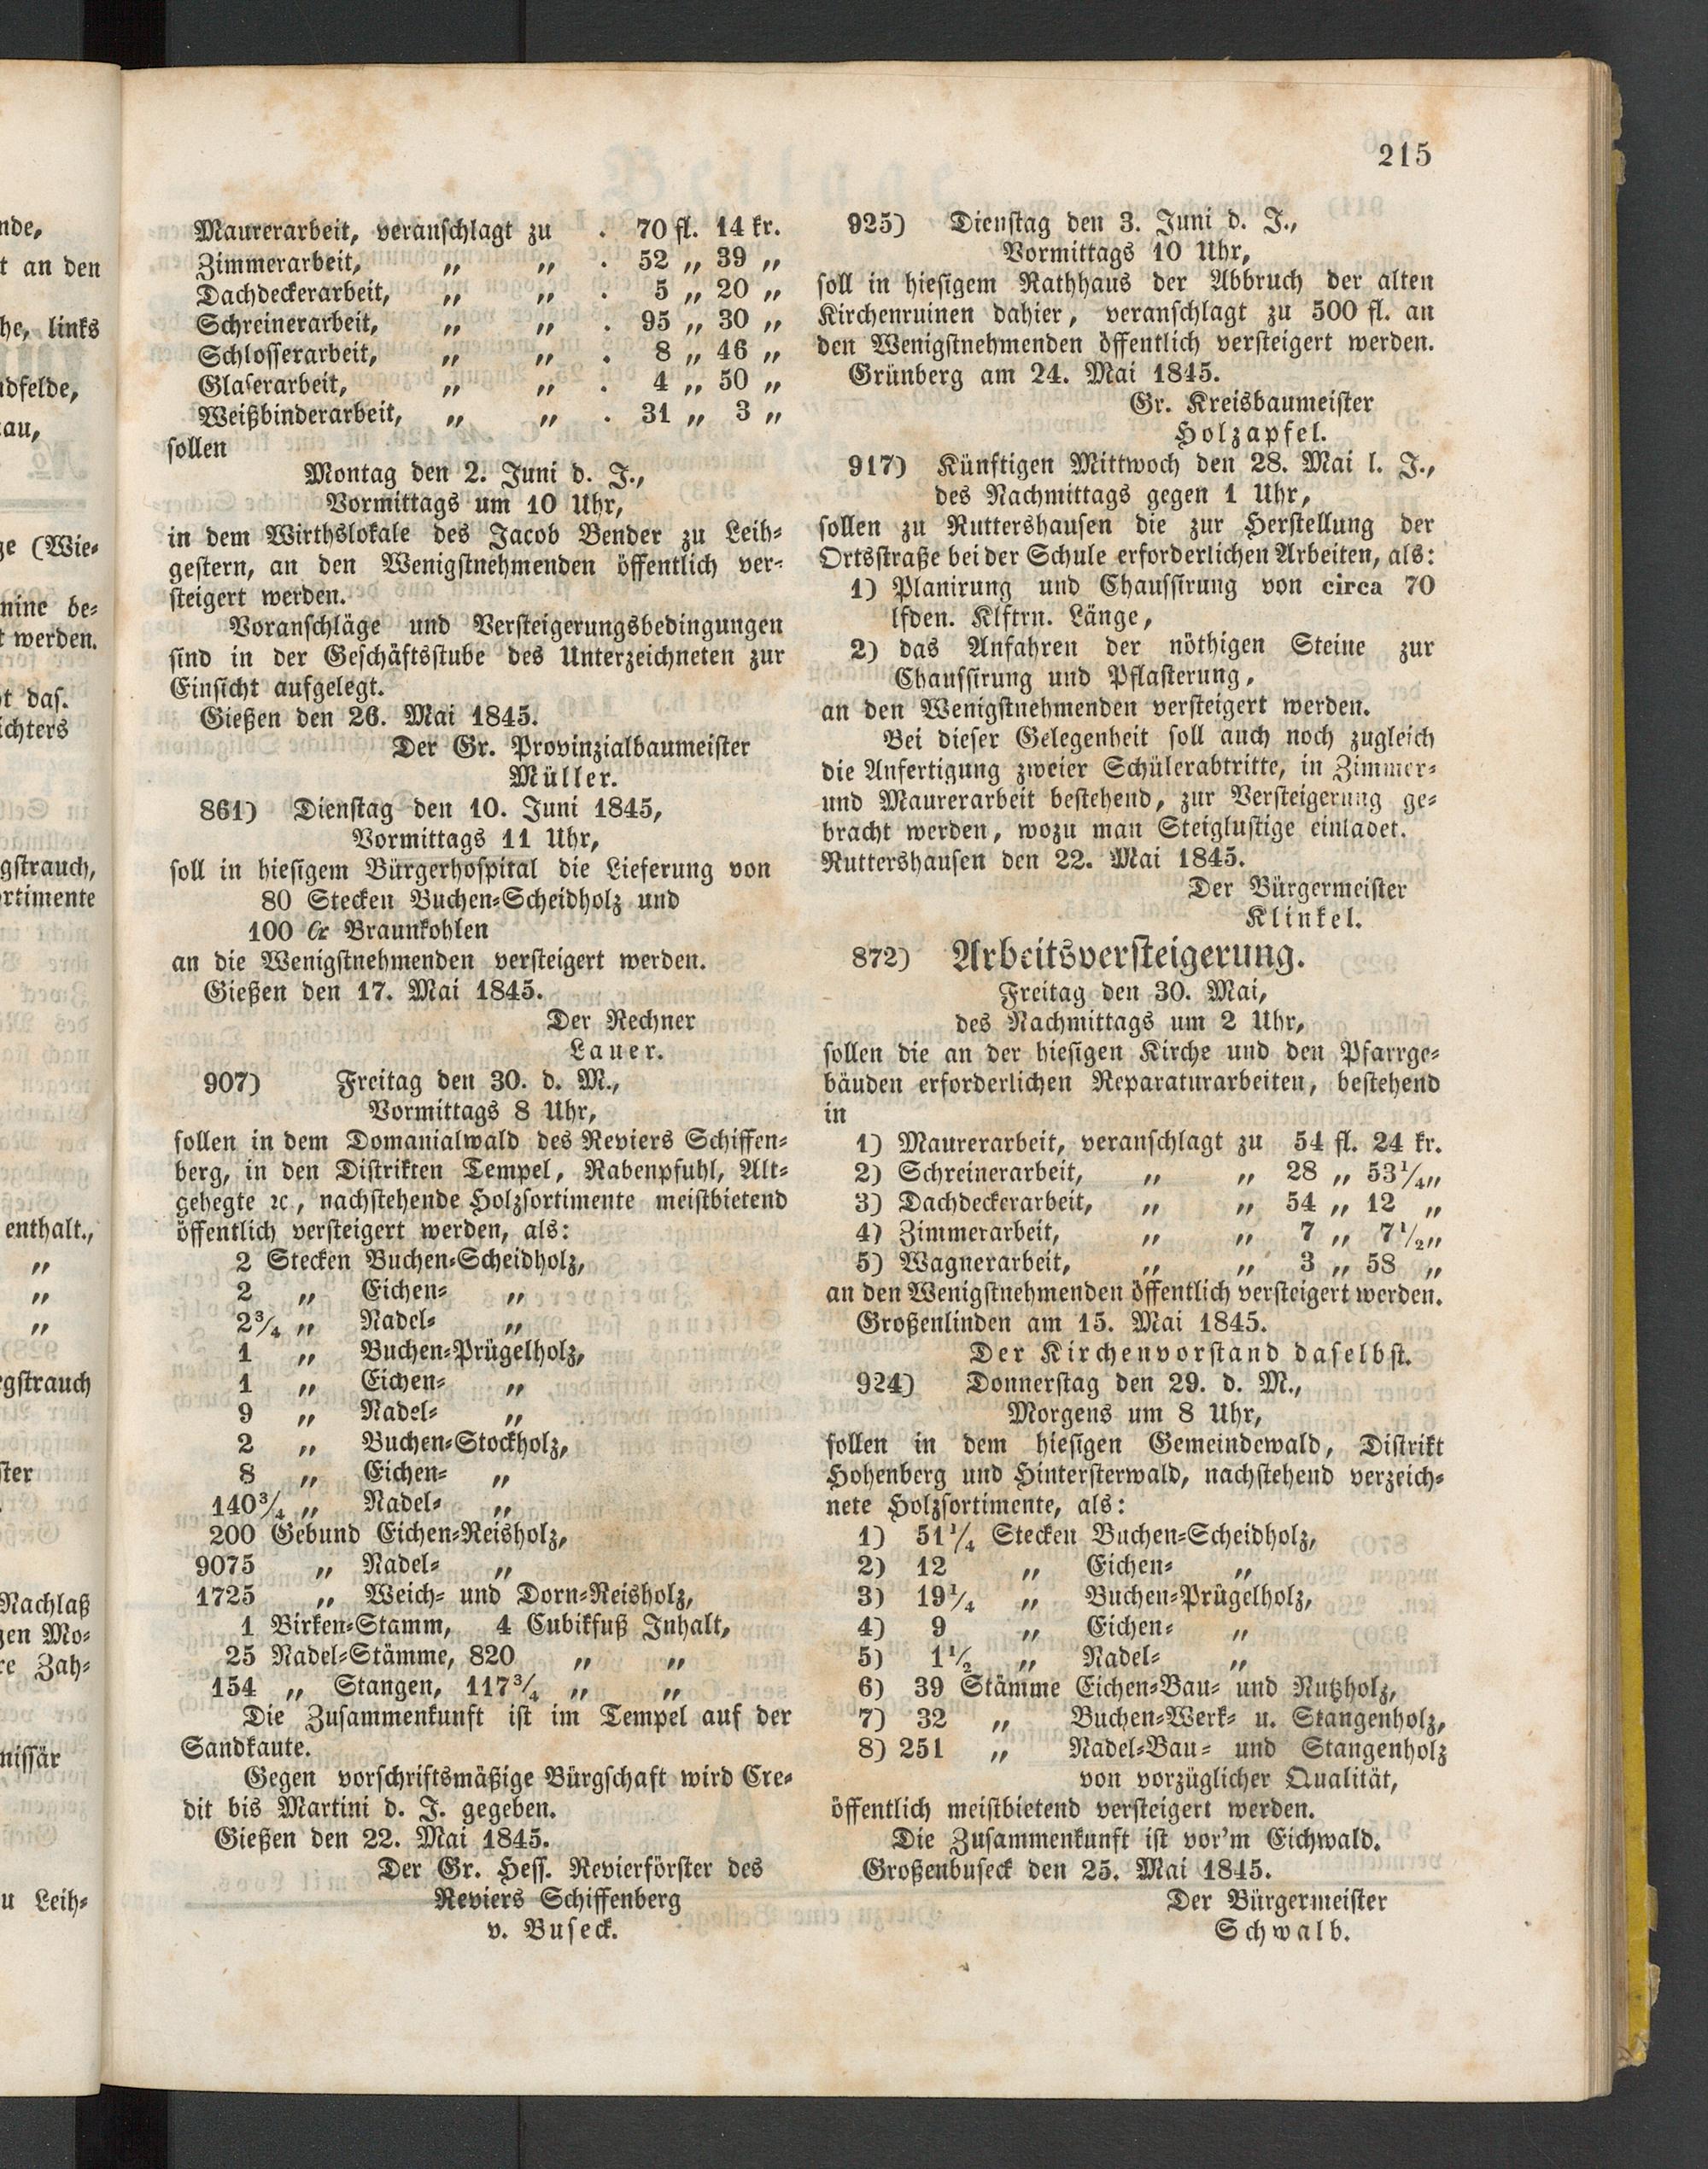 215
Maurerarbeit, veranschlagt zu . 70 fl. 14 kr.
Zimmerarbeit, „ „ . 52 „ 39 „
Dachdeckerarbeit, „ „ . 5 „ 20 „
Schreinerarbeit, „ „ . 95 „ 30 „
Schlosserarbeit, „ „ . 8 „ 46 „
Glaserarbeit, „ „ . 4 „ 50 „
Weißbinderarbeit, „ „ . 31 „ 3 „
sollen
Montag den 2. Juni d. J.,
Vormittags um 10 Uhr,
in dem Wirthslokale des Jacob Bender zu Leih-
gestern, an den Wenigstnehmenden öffentlich ver-
steigert werden.
Voranschläge und Versteigerungsbedingungen
sind in der Geschäftsstube des Unterzeichneten zur
Einsicht aufgelegt.
Gießen den 26. Mai 1845.
Der Gr. Provinzialbaumeister
Müller.
861) Dienstag den 10. Juni 1845,
Vormittags 11 Uhr,
soll in hiesigem Bürgerhospital die Lieferung von
80 Stecken Buchen-Scheidholz und
100 Braunkohlen
an die Wenigstnehmenden versteigert werden.
Gießen den 17. Mai 1845.
Der Rechner
Lauer.
907) Freitag den 30. d. M.,
Vormittags 8 Uhr,
sollen in dem Domanialwald des Reviers Schiffen-
berg, in den Distrikten Tempel, Rabenpfuhl, Alt-
gehegte ꝛc, nachstehende Holzsortimente meistbietend
öffentlich versteigert werden, als:
2 Stecken Buchen-Scheidholz,
2 „ Eichen- „
2¾ „ Nadel- „
1 „ Buchen-Prügelholz,
1 „ Eichen- „
9 „ Nadel- „
2 „ Buchen-Stockholz,
8 „ Eichen- „
140¾ „ Nadel- „
200 Gebund Eichen-Reisholz,
9075 „ Nadel- „
1725 „ Weich- und Dorn-Reisholz,
1 Birken-Stamm, 4 Cubikfuß Inhalt,
25 Nadel-Stämme, 820 „ „
154 „ Stangen, 117¾ „ „
Die Zusammenkunft ist im Tempel auf der
Sandkaute.
Gegen vorschriftsmäßige Bürgschaft wird Cre-
dit bis Martini d. J. gegeben.
Gießen den 22. Mai 1845.
Der Gr. Hess. Revierförster des
Reviers Schiffenberg
v. Buseck.
925) Dienstag den 3. Juni d. J.,
Vormittags 10 Uhr,
soll in hiesigem Rathhaus der Abbruch der alten
Kirchenruinen dahier, veranschlagt zu 500 fl. an
den Wenigstnehmenden öffentlich versteigert werden.
Grünberg am 24. Mai 1845.
Gr. Kreisbaumeister
Holzapfel.
917) Künftigen Mittwoch den 28. Mai l. J.,
des Nachmittags gegen 1 Uhr,
sollen zu Ruttershausen die zur Herstellung der
Ortsstraße bei der Schule erforderlichen Arbeiten, als:
1) Planirung und Chaussirung von circa 70
lfden. Klftrn. Länge,
2) das Anfahren der nöthigen Steine zur
Chaussirung und Pflasterung,
an den Wenigstnehmenden versteigert werden.
Bei dieser Gelegenheit soll auch noch zugleich
die Anfertigung zweier Schülerabtritte, in Zimmer-
und Maurerarbeit bestehend, zur Versteigerung ge-
bracht werden, wozu man Steiglustige einladet.
Ruttershausen den 22. Mai 1845.
Der Bürgermeister
Klinkel.
872) Arbeitsversteigerung.
Freitag den 30. Mai,
des Nachmittags um 2 Uhr,
sollen die an der hiesigen Kirche und den Pfarrge-
bäuden erforderlichen Reparaturarbeiten, bestehend
in
1) Maurerarbeit, veranschlagt zu 54 fl. 24 kr.
2) Schreinerarbeit, „ „ 28 „ 53¼„
3) Dachdeckerarbeit, „ „ 54 „ 12 „
4) Zimmerarbeit, „ „ 7 „ 7½„
5) Wagnerarbeit, „ „ 3 „ 58 „
an den Wenigstnehmenden öffentlich versteigert werden.
Großenlinden am 15. Mai 1845.
Der Kirchenvorstand daselbst.
924) Donnerstag den 29. d. M.,
Morgens um 8 Uhr,
sollen in dem hiesigen Gemeindewald, Distrikt
Hohenberg und Hintersterwald, nachstehend verzeich-
nete Holzsortimente, als:
1) 51¼ Stecken Buchen-Scheidholz,
2) 12 „ Eichen- „
3) 19¼ „ Buchen-Prügelholz,
4) 9 „ Eichen- „
5) 1½ „ Nadel- „
6) 39 Stämme Eichen-Bau- und Nutzholz,
7) 32 „ Buchen-Werk- u. Stangenholz,
8) 251 „ Nadel-Bau- und Stangenholz
von vorzüglicher Qualität,
öffentlich meistbietend versteigert werden.
Die Zusammenkunft ist vor'm Eichwald.
Großenbuseck den 25. Mai 1845.
Der Bürgermeister
Schwalb.